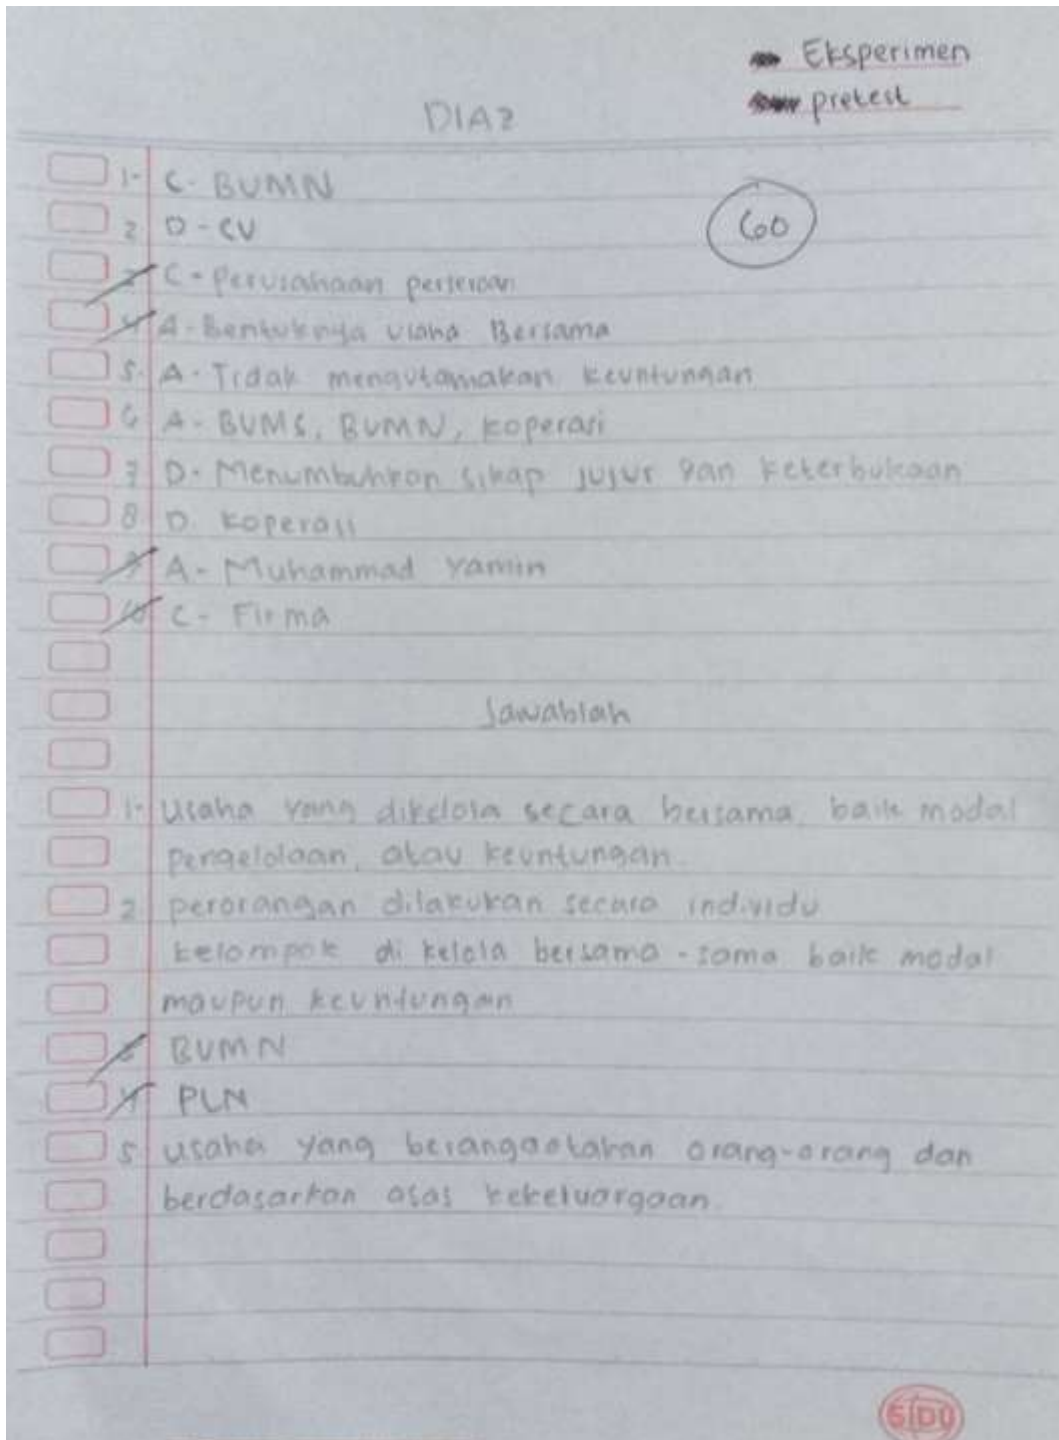 Eksperimen
pretest
DIAZ
1- C- BUMN
60
2 D - CV
3 C - Perusahaan perseroan
4 A - Bentuknya usaha Bersama
5. A - Tidak mengutamakan keuntungan
6 A - BUMS, BUMN, koperasi
7 D - Menumbuhkan sikap jujur dan keterbukaan
8 D. koperasi
9 A - Muhammad Yamin
10 C - Firma
Jawablah
1- Usaha yang dikelola secara bersama, baik modal
pengelolaan, atau keuntungan
2 perorangan dilakukan secara individu
kelompok di kelola bersama - sama baik modal
maupun keuntungan
3 BUMN
4 PLN
5 usaha yang berangaotakan orang-orang dan
berdasarkan asas kekeluargaan.
SIDU